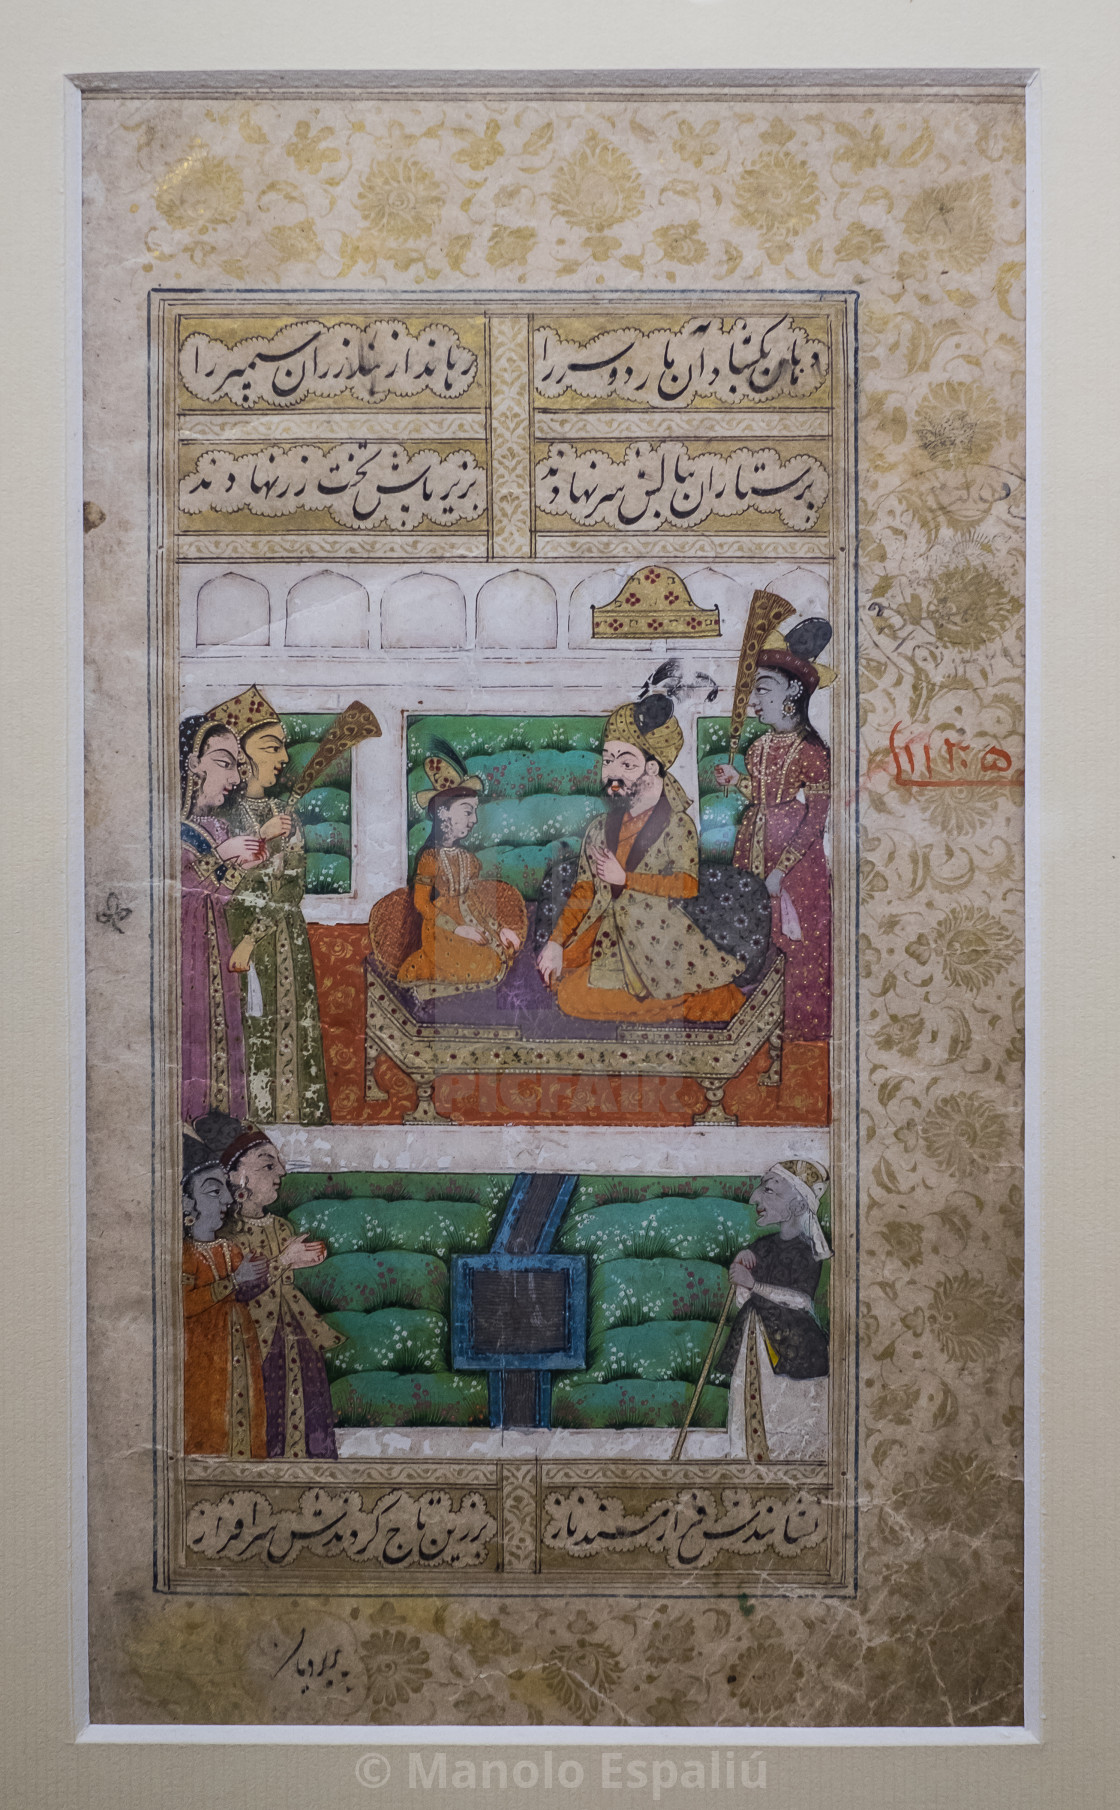 دهان بگشاد آن مار دوسر را رهاند از بند زر آن سیمبر را
پرستاران ببالش سر نهادند بزیر پاش تخت زر نهادند
نشاندندش فراز مسند ناز بزرین تاج کردندش سرافراز
پریرویان
PICFAIR
© Manolo Espaliú